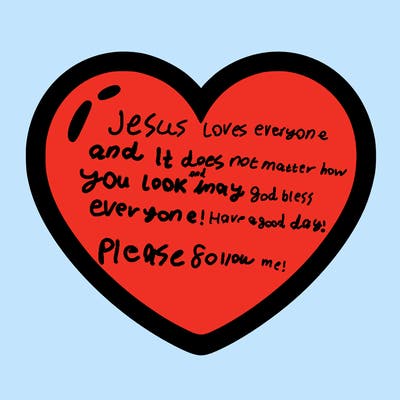 Jesus loves everyone
and It does not matter how
you look and may god bless
everyone! Have a good day!
Please follow me!